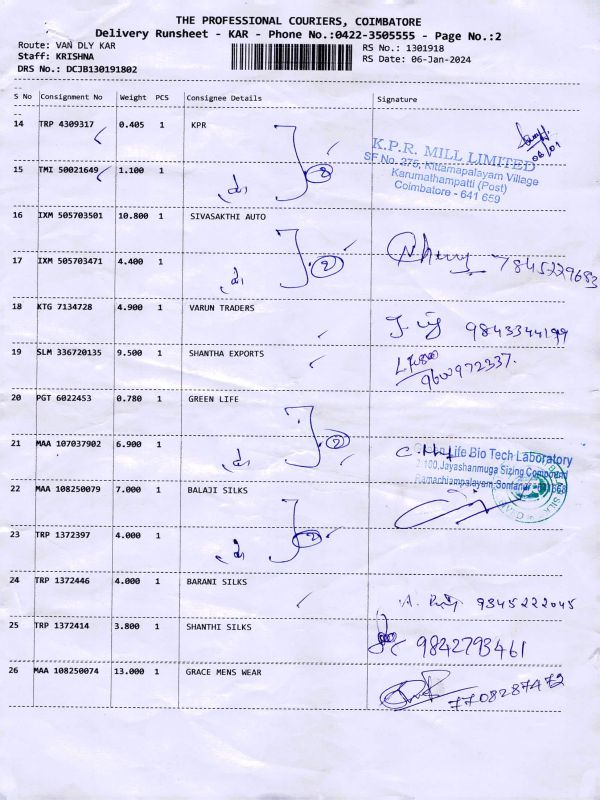 THE PROFESSIONAL COURIERS, COIMBATORE
Delivery Runsheet - KAR - Phone No.:0422-3505555 - Page No.:2
Route: VAN DLY KAR RS No.: 1301918
Staff: KRISHNA RS Date: 06-Jan-2024
DRS No.: DCJB130191802
S No Consignment No Weight PCS Consignee Details Signature
14 TRP 4309317 0.405 1 KPR
06/01
K.P.R. MILL LIMITED
SF.No. 275, Kittamapalayam Village
Karumathampatti (Post)
Coimbatore - 641 659
15 TMI 50021649 1.100 1
2
16 IXM 505703501 10.800 1 SIVASAKTHI AUTO
17 IXM 505703471 4.400 1
2 7845229683
18 KTG 7134728 4.900 1 VARUN TRADERS
9843344199
19 SLM 336720135 9.500 1 SHANTHA EXPORTS
9600972337.
20 PGT 6022453 0.780 1 GREEN LIFE
21 MAA 107037902 6.900 1
2
Life Bio Tech Laboratory
100, Jayashanmuga Sizing Compound
Ramachiampalayam, Somanur
22 MAA 108250079 7.000 1 BALAJI SILKS
23 TRP 1372397 4.000 1
2
24 TRP 1372446 4.000 1 BARANI SILKS
9345222045
25 TRP 1372414 3.800 1 SHANTHI SILKS
9842793461
26 MAA 108250074 13.000 1 GRACE MENS WEAR
7708287472